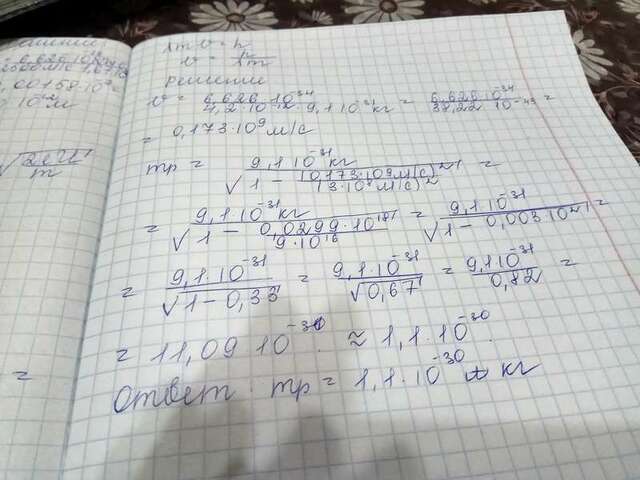 λmv = h
v = h/λm
Решение
v = 6,626·10⁻³⁴/4,2·10⁻¹²·9,1·10⁻³¹кг = 6,626·10⁻³⁴/38,22·10⁻⁴³ =
= 0,173·10⁹ м/с
mр = 9,1·10⁻³¹кг/√1 - (0,173·10⁹м/с)²/(3·10⁸м/с)² =
= 9,1·10⁻³¹кг/√1 - 0,0299·10¹⁸/9·10¹⁶ = 9,1·10⁻³¹/√1 - 0,003·10² =
= 9,1·10⁻³¹/√1 - 0,33 = 9,1·10⁻³¹/√0,67 = 9,1·10⁻³¹/0,82 =
= 11,09·10⁻³¹ ≈ 1,1·10⁻³⁰.
Ответ. mр = 1,1·10⁻³⁰ кг
√2eU/m
=